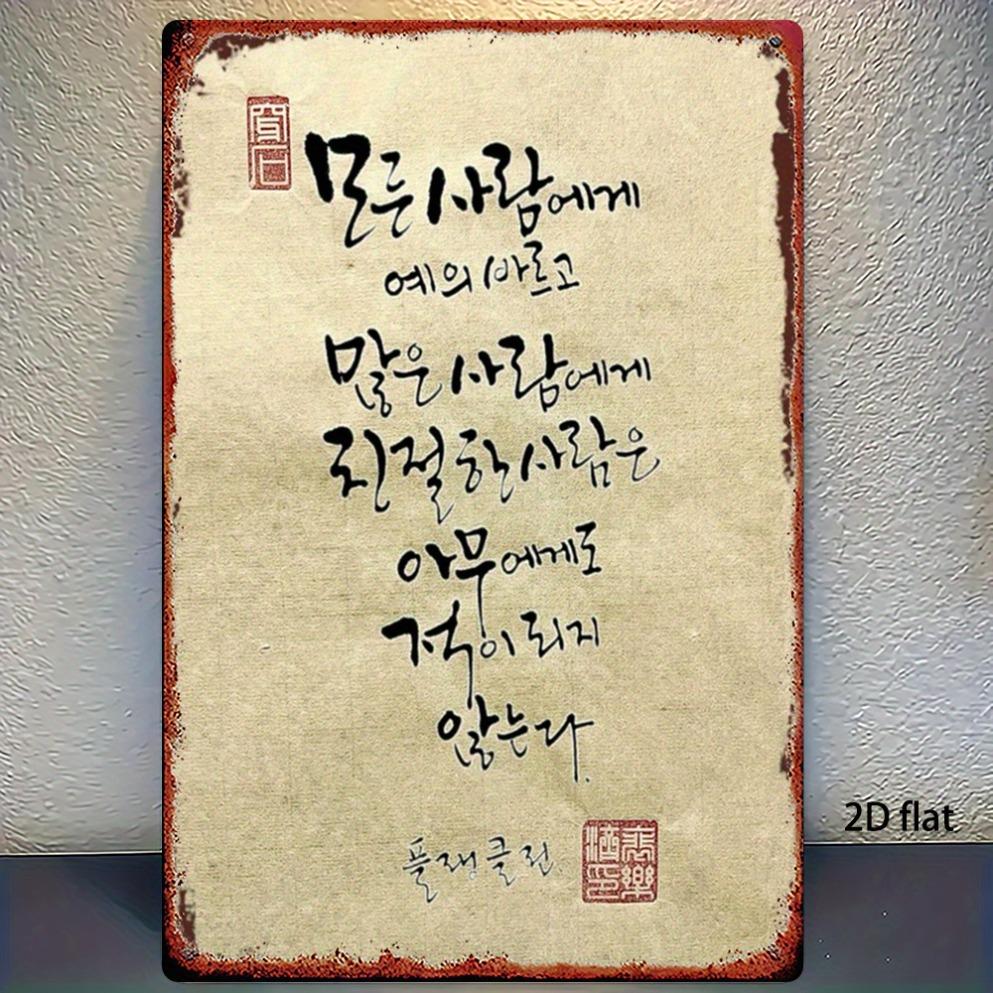 모든 사람에게
예의 바르고
많은 사람에게
친절한 사람은
아무에게도
적이 되지
않는다.
플랭클린
2D flat